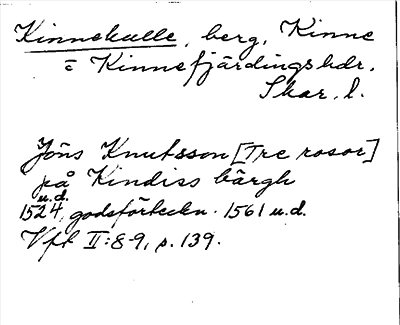 Kinnekulle, berg, Kinne
= Kinnefjärdings hdr.
Skar. l.
Jöns Knutsson [Tre rosor]
på Kindiss bärgh
u.d.
1524, godsförteckn. 1561 u.d.
Vfl II:8-9, s. 139.